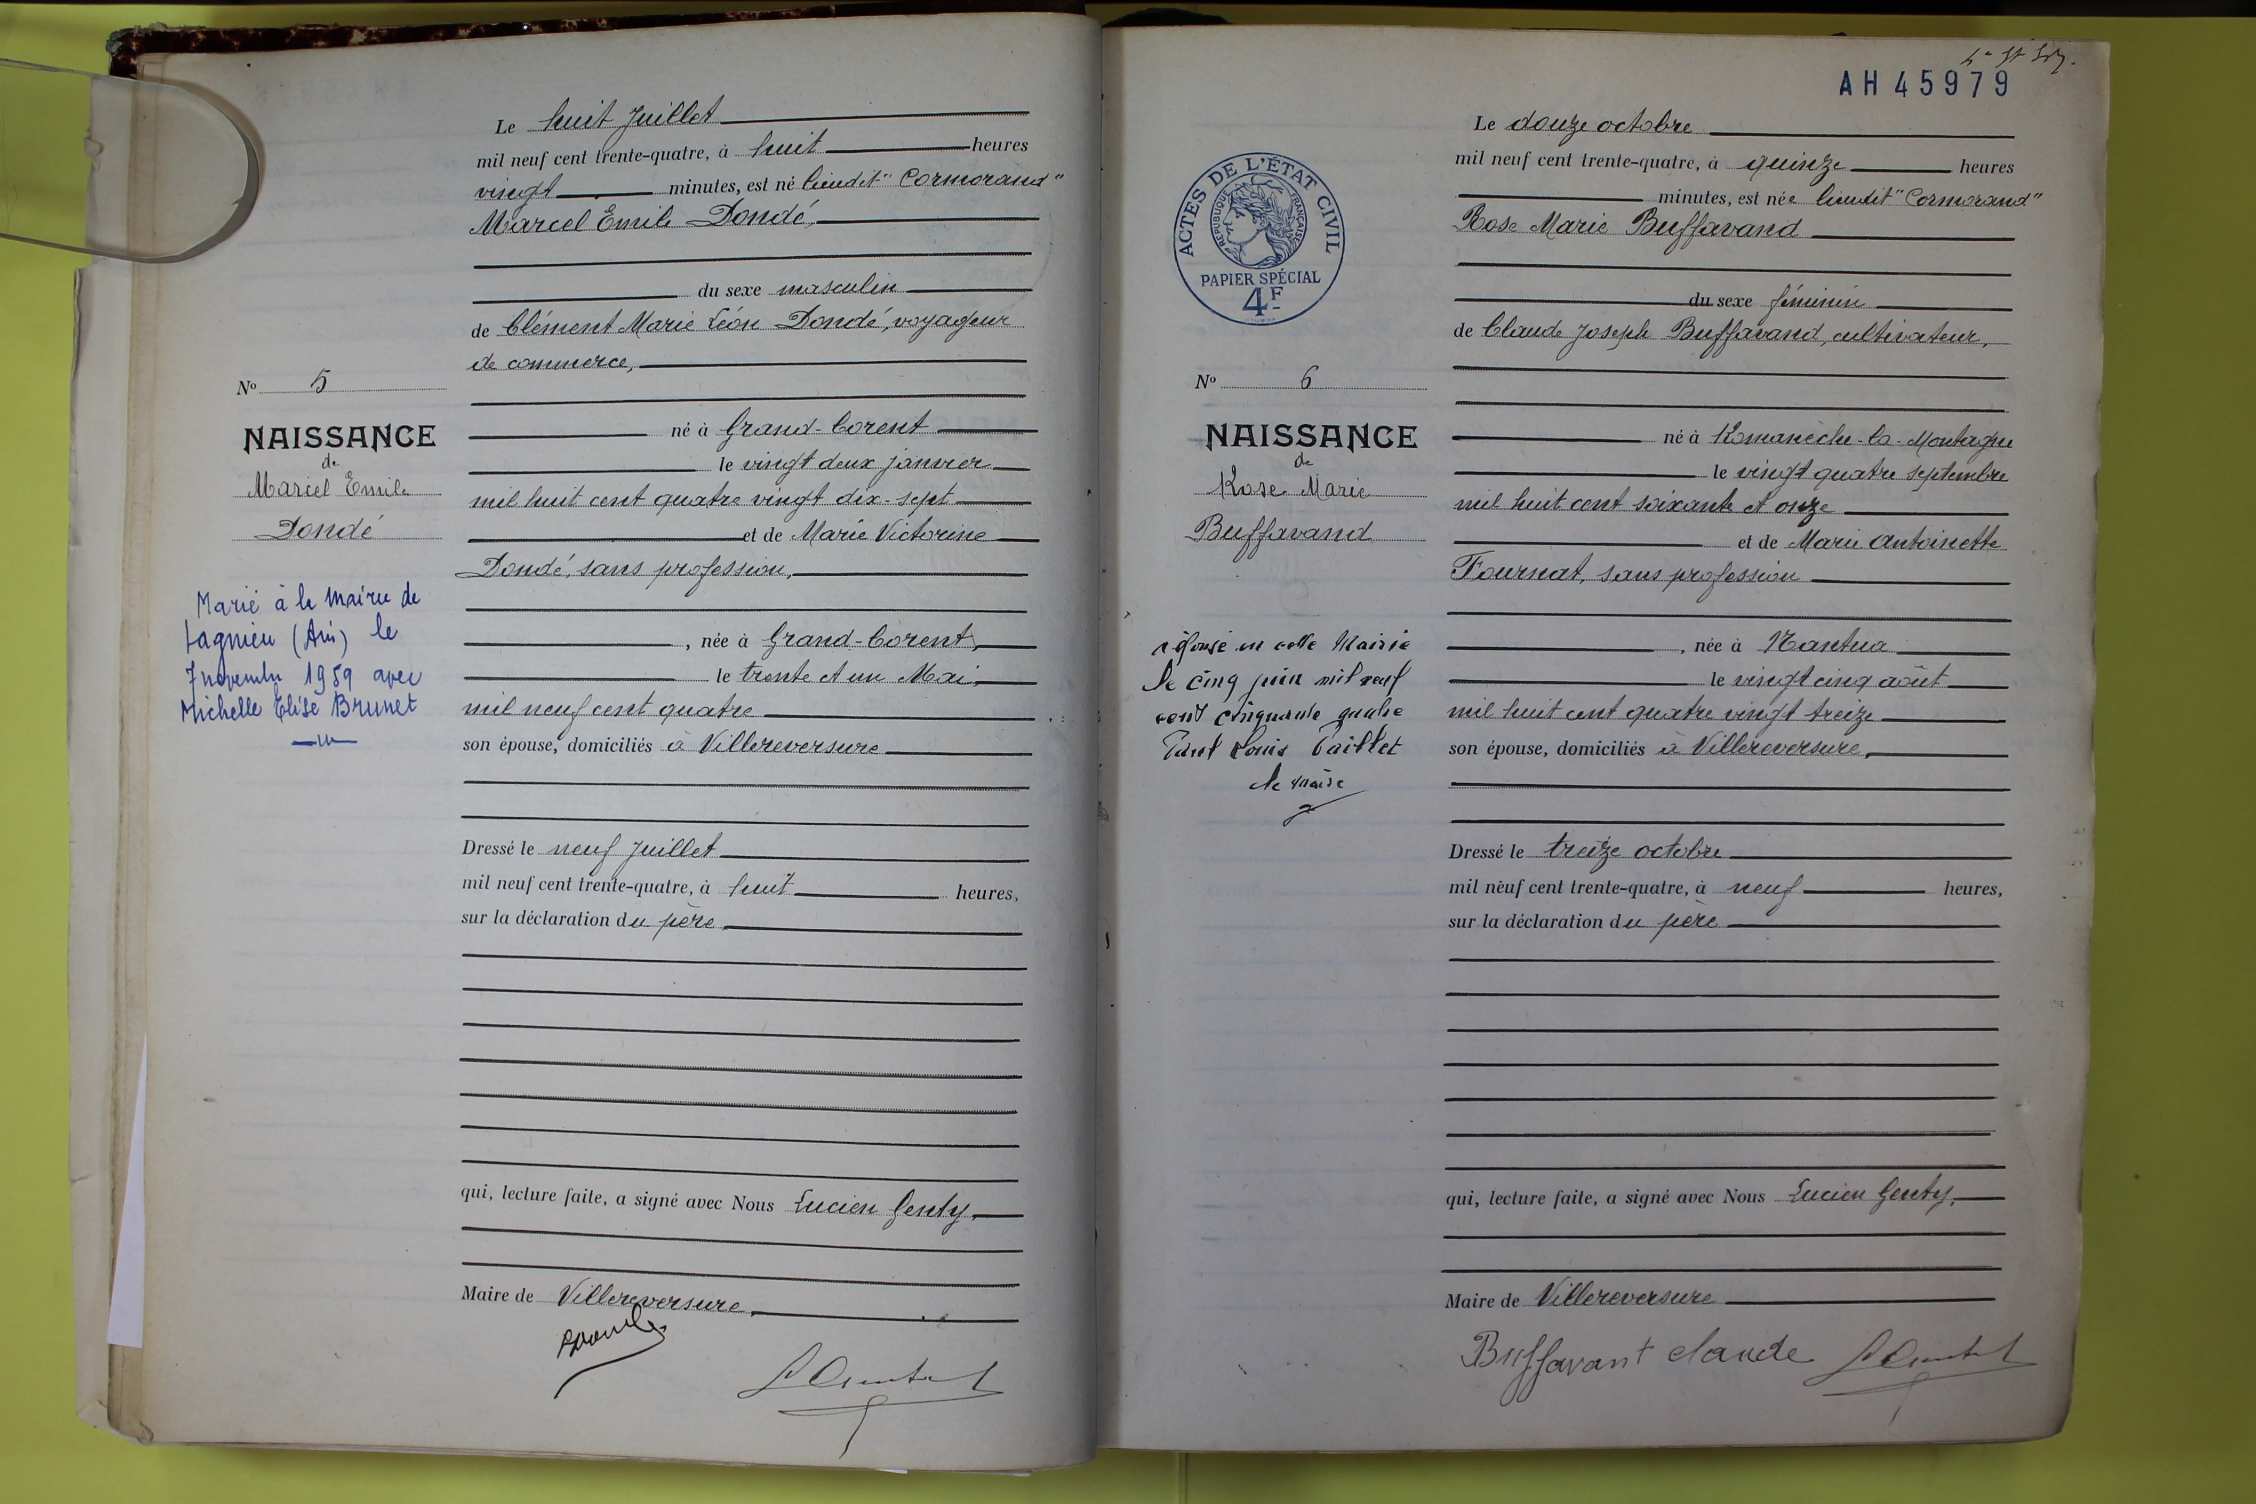 Le huit Juillet
mil neuf cent trente-quatre, à huit heures
vingt minutes, est né lieudit "Cormorand"
Marcel Emile Dondé,
du sexe masculin
de Clément Marie Léon Dondé, voyageur
de commerce,
né à Grand-Corent
le vingt deux janvier
mil huit cent quatre vingt dix-sept
et de Marie Victorine
Dondé, sans profession,
, née à Grand-Corent,
le trente et un Mai,
mil neuf cent quatre
son épouse, domiciliés à Villereversure
Dressé le neuf Juillet
mil neuf cent trente-quatre, à huit heures,
sur la déclaration du père
qui, lecture faite, a signé avec Nous Lucien Genty,
Maire de Villereversure,
No 5
NAISSANCE
de
Marcel Emile
Dondé
Marié à la Mairie de
Lagnieu (Ain) le
7 novembre 1959 avec
Michelle Elise Brunet
AH 45979
ACTES DE L'ÉTAT CIVIL
RÉPUBLIQUE FRANÇAISE
PAPIER SPÉCIAL
4F
Le douze octobre
mil neuf cent trente-quatre, à quinze heures
minutes, est née lieudit "Cormorand"
Rose Marie Buffavand
du sexe féminin
de Claude Joseph Buffavand, cultivateur,
né à Romanèche-la-Montagne
le vingt quatre septembre
mil huit cent soixante et onze
et de Marie Antoinette
Fournat, sans profession
, née à Nantua
le vingt cinq août
mil huit cent quatre vingt treize
son épouse, domiciliés à Villereversure,
Dressé le treize octobre
mil neuf cent trente-quatre, à neuf heures,
sur la déclaration du père
qui, lecture faite, a signé avec Nous Lucien Genty,
Maire de Villereversure
Buffavant claude
No 6
NAISSANCE
de
Rose Marie
Buffavand
a épousé en cette Mairie
le cinq juin mil neuf
cent cinquante quatre
Paul Louis Paillet
le maire